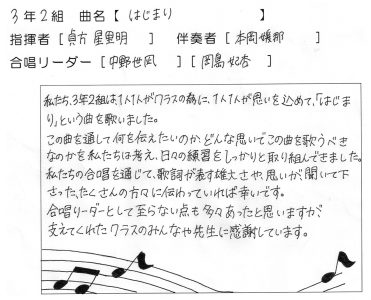 3年2組 曲名【 はじまり 】
指揮者 [ 貞方 星里明 ] 伴奏者 [ 本岡 ]
合唱リーダー [ 中野世凪 ] [ 岡島 ]
私たち、3年2組は、1人1人がクラスの為に、1人1人が思いを込めて、「はじま
り」という曲を歌いました。
この曲を通して何を伝えたいのか、どんな思いでこの曲を歌うべき
なのかを私たちは考え、日々の練習をしっかりと取り組んできました。
私たちの合唱を通じて、歌詞が表す雄大さや、思いが、聞いて下
さった、たくさんの方々に伝わっていれば幸いです。
合唱リーダーとして至らない点も多々あったと思いますが、
支えてくれたクラスのみんなや先生に感謝しています。